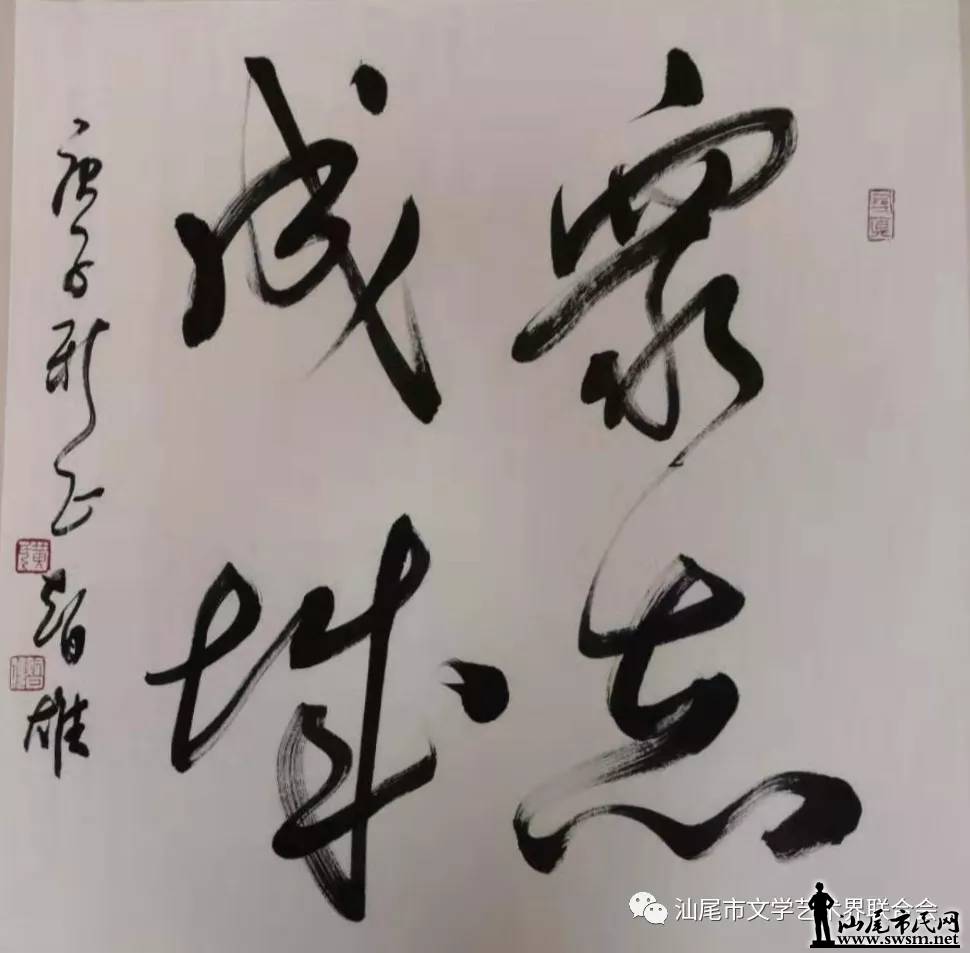 眾志
成城
庚子新正智雄
汕尾市文学艺术界联合会
汕尾市民网
www.swsm.net